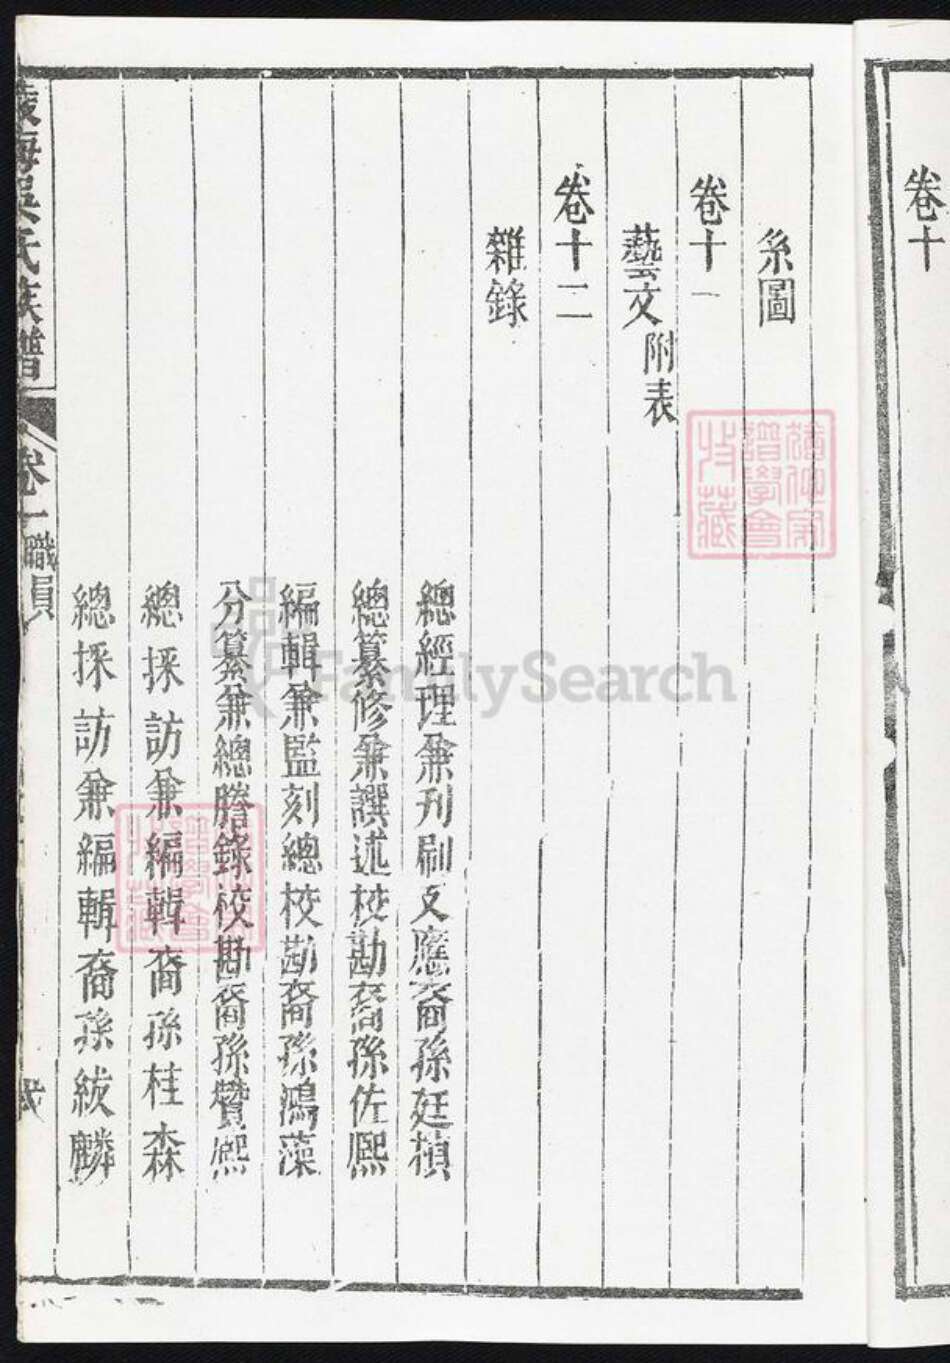 卷十
系圖
卷十一
藝文附表
卷十二
雜錄
總經理兼刋刷支應裔孫廷楨
總纂修兼譔述校勘裔孫佐熙
編輯兼監刻總校勘裔孫鴻藻
分纂兼總謄錄校勘裔孫贊熙
總採訪兼編輯裔孫桂森
總採訪兼編輯裔孫紱麟
吳氏族譜 卷一 職員 弍
譜學會
收藏
FamilySearch